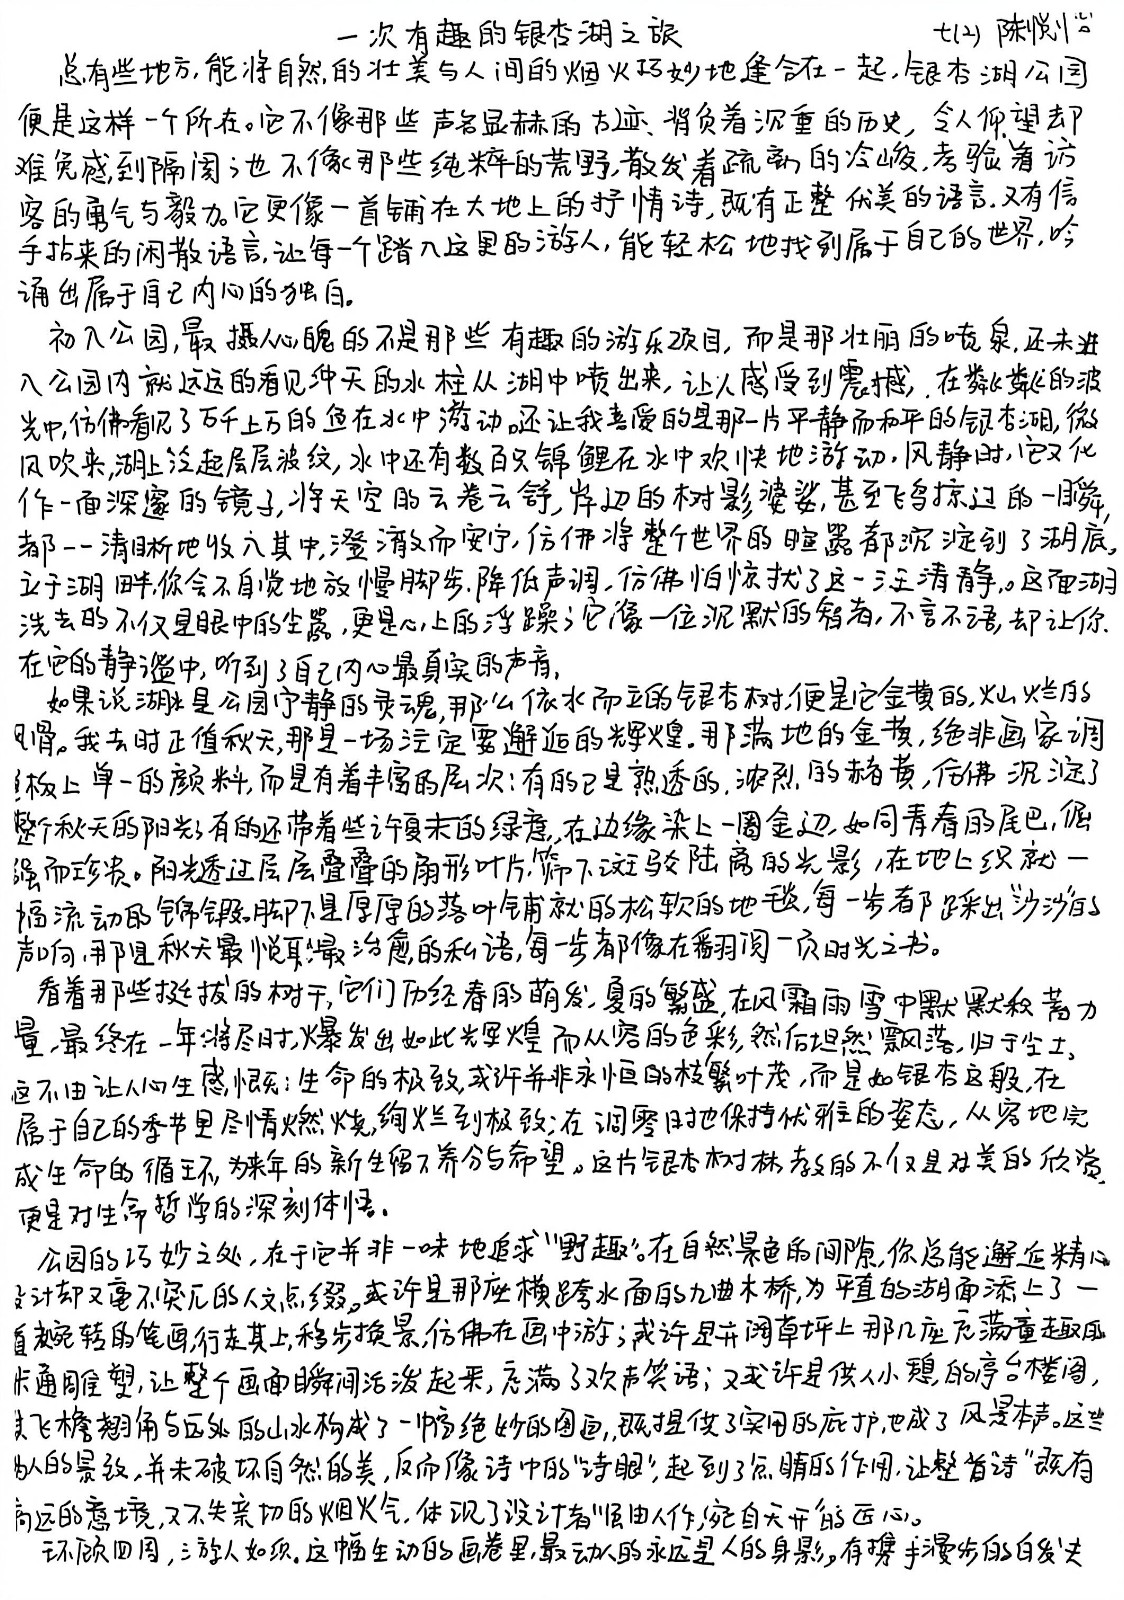 一次有趣的银杏湖之旅 七(2) 陈悦怡
总有些地方,能将自然的壮美与人间的烟火巧妙地逢合在一起,银杏湖公园
便是这样一个所在。它不像那些声名显赫的古迹、背负着沉重的历史,令人仰望却
难免感到隔阂;也不像那些纯粹的荒野,散发着疏离的冷峻,考验着访
客的勇气与毅力。它更像一首铺在大地上的抒情诗,既有正整优美的语言,又有信
手拈来的闲散语言,让每一个踏入这里的游人,能轻松地找到属于自己的世界,吟
诵出属于自己内心的独白。
初入公园,最摄人心魄的不是那些有趣的游乐项目,而是那壮丽的喷泉,还未进
入公园内就远远的看见冲天的水柱从湖中喷出来,让人感受到震撼,在粼粼的波
光中,仿佛看见了万千上万的鱼在水中游动。还让我喜爱的是那一片平静而和平的银杏湖,微
风吹来,湖上泛起层层波纹,水中还有数百只锦鲤在水中欢快地游动,风静时,它又化
作一面深邃的镜子,将天空的云卷云舒,岸边的树影婆娑,甚至飞鸟掠过的一瞬,
都一一清晰地收入其中,澄澈而安宁,仿佛将整个世界的喧嚣都沉淀到了湖底。
立于湖畔,你会不自觉地放慢脚步,降低声调,仿佛怕惊扰了这一汪清静。这面湖
洗去的不仅是眼中的尘嚣,更是心上的浮躁;它像一位沉默的智者,不言不语,却让你
在它的静谧中,听到了自己内心最真实的声音,
如果说湖水是公园宁静的灵魂,那么依水而立的银杏树,便是它金黄的,灿烂的
风骨。我去时正值秋天,那是一场注定要邂逅的辉煌.那满地的金黄,绝非画家调
色板上单一的颜料,而是有着丰富的层次:有的已是熟透的,浓烈的赭黄,仿佛沉淀了
整个秋天的阳光;有的还带着些许夏末的绿意,在边缘染上一圈金边,如同青春的尾巴,倔
强而珍贵。阳光透过层层叠叠的扇形叶片,筛下斑驳陆离的光影,在地上织就一
幅流动的锦缎。脚下是厚厚的落叶铺就的松软的地毯,每一步都踩出"沙沙"的
声响,那是秋天最悦耳最治愈的私语,每一步都像在翻阅一页时光之书。
看着那些挺拔的树干,它们历经春的萌发,夏的繁盛,在风霜雨雪中默默积蓄力
量,最终在一年将尽时,爆发出如此辉煌而从容的色彩,然后坦然飘落,归于尘土。
这不由让人心生感慨:生命的极致,或许并非永恒的枝繁叶茂,而是如银杏这般,在
属于自己的季节里尽情燃烧,绚烂到极致;在凋零时也保持优雅的姿态,从容地完
成生命的循环,为来年的新生留下养分与希望。这片银杏树林教的不仅是对美的欣赏,
更是对生命哲学的深刻体悟。
公园的巧妙之处,在于它并非一味地追求"野趣"。在自然景色的间隙,你总能邂逅精心
设计却又毫不突兀的人文点缀。或许是那座横跨水面的九曲木桥,为平直的湖面添上了一
道宛转的笔画,行走其上,移步换景,仿佛在画中游;或许是开阔草坪上那几座充满童趣的
卡通雕塑,让整个画面瞬间活泼起来,充满了欢声笑语;又或许是供人小憩的亭台楼阁,
其飞檐翘角与远处的山水构成了一幅绝妙的图画,既提供了实用的庇护,也成了风景本身。这些
人的景致,并未破坏自然的美,反而像诗中的"诗眼",起到了点睛的作用,让整首诗"既有
高远的意境,又不失亲切的烟火气,体现了设计者"虽由人作,宛自天开"的匠心。
环顾四周,游人如织.这幅生动的画卷里,最动人的永远是人的身影。有携手漫步的白发夫